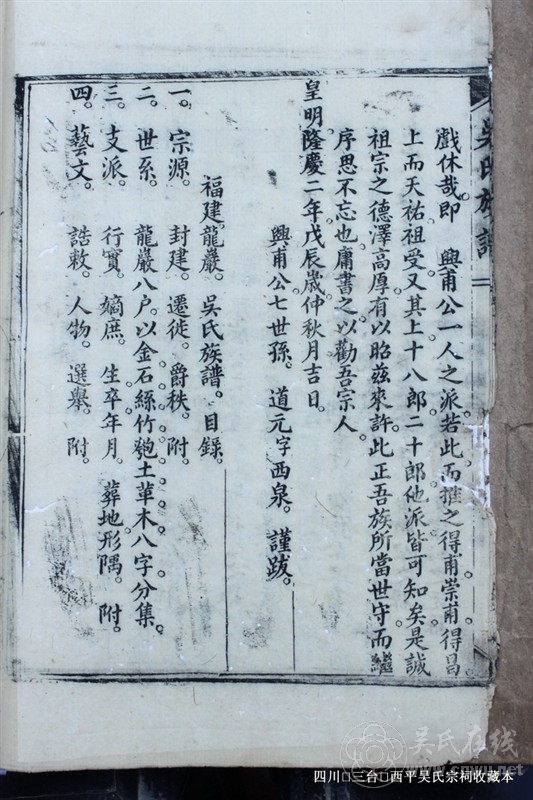 吳氏族譜
戲休哉即　興甫公一人之派若此而推之得甫崇甫得昌
上而天祐祖受又其上十八郎二十郎他派皆可知矣是誠
祖宗之德澤高厚有以昭茲來許此正吾族所當世守而
序思不忘也庸書之以勸吾宗人
皇明隆慶二年戊辰歲仲秋月吉日
興甫公七世孫　道元字西泉　謹跋
福建龍巖　吳氏族譜　目錄
一　宗源　封建　遷徙　爵秩　附
二　世系　龍巖八户以金石絲竹匏土革木八字分集
三　支派　行實　嫡庶　生卒年月　葬地形隅　附
四　藝文　誥敕　人物　選舉　附
吴氏在线
www.cnwu.net
四川□三台□西平吴氏宗祠收藏本